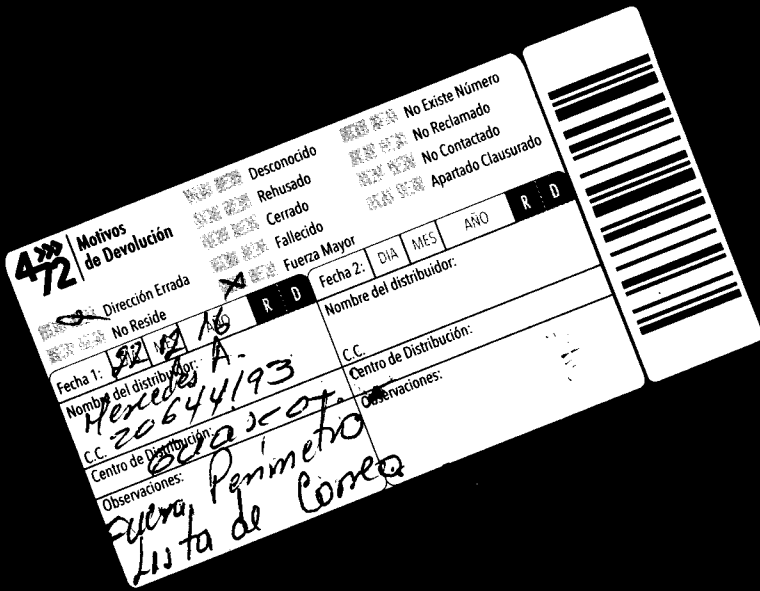 4>>>72
Motivos
de Devolución
Desconocido
Rehusado
Cerrado
Fallecido
Fuerza Mayor
No Existe Número
No Reclamado
No Contactado
Apartado Clausurado
Dirección Errada
No Reside
Fecha 1: 22 12 16 R D
Nombre del distribuidor:
Mercedes A.
C.C. 20644193
Centro de Distribución:
Observaciones:
Fuera Perimetro
Lista de Correo
Fecha 2: DIA MES AÑO R D
Nombre del distribuidor:
C.C.
Centro de Distribución:
Observaciones: